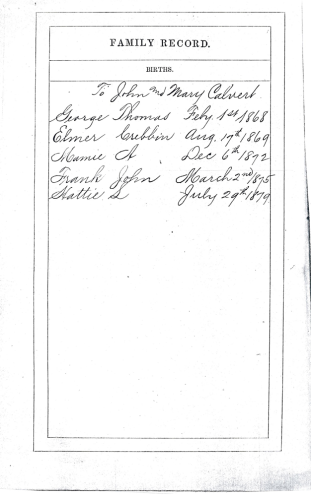 FAMILY RECORD.
BIRTHS.
To John and Mary Calvert
George Thomas Feby. 1st 1868
Elmer Crebbin Aug. 17th 1869
Mamie A Dec 6th 1872
Frank John March 2nd 1875
Hattie L July 29th 1879